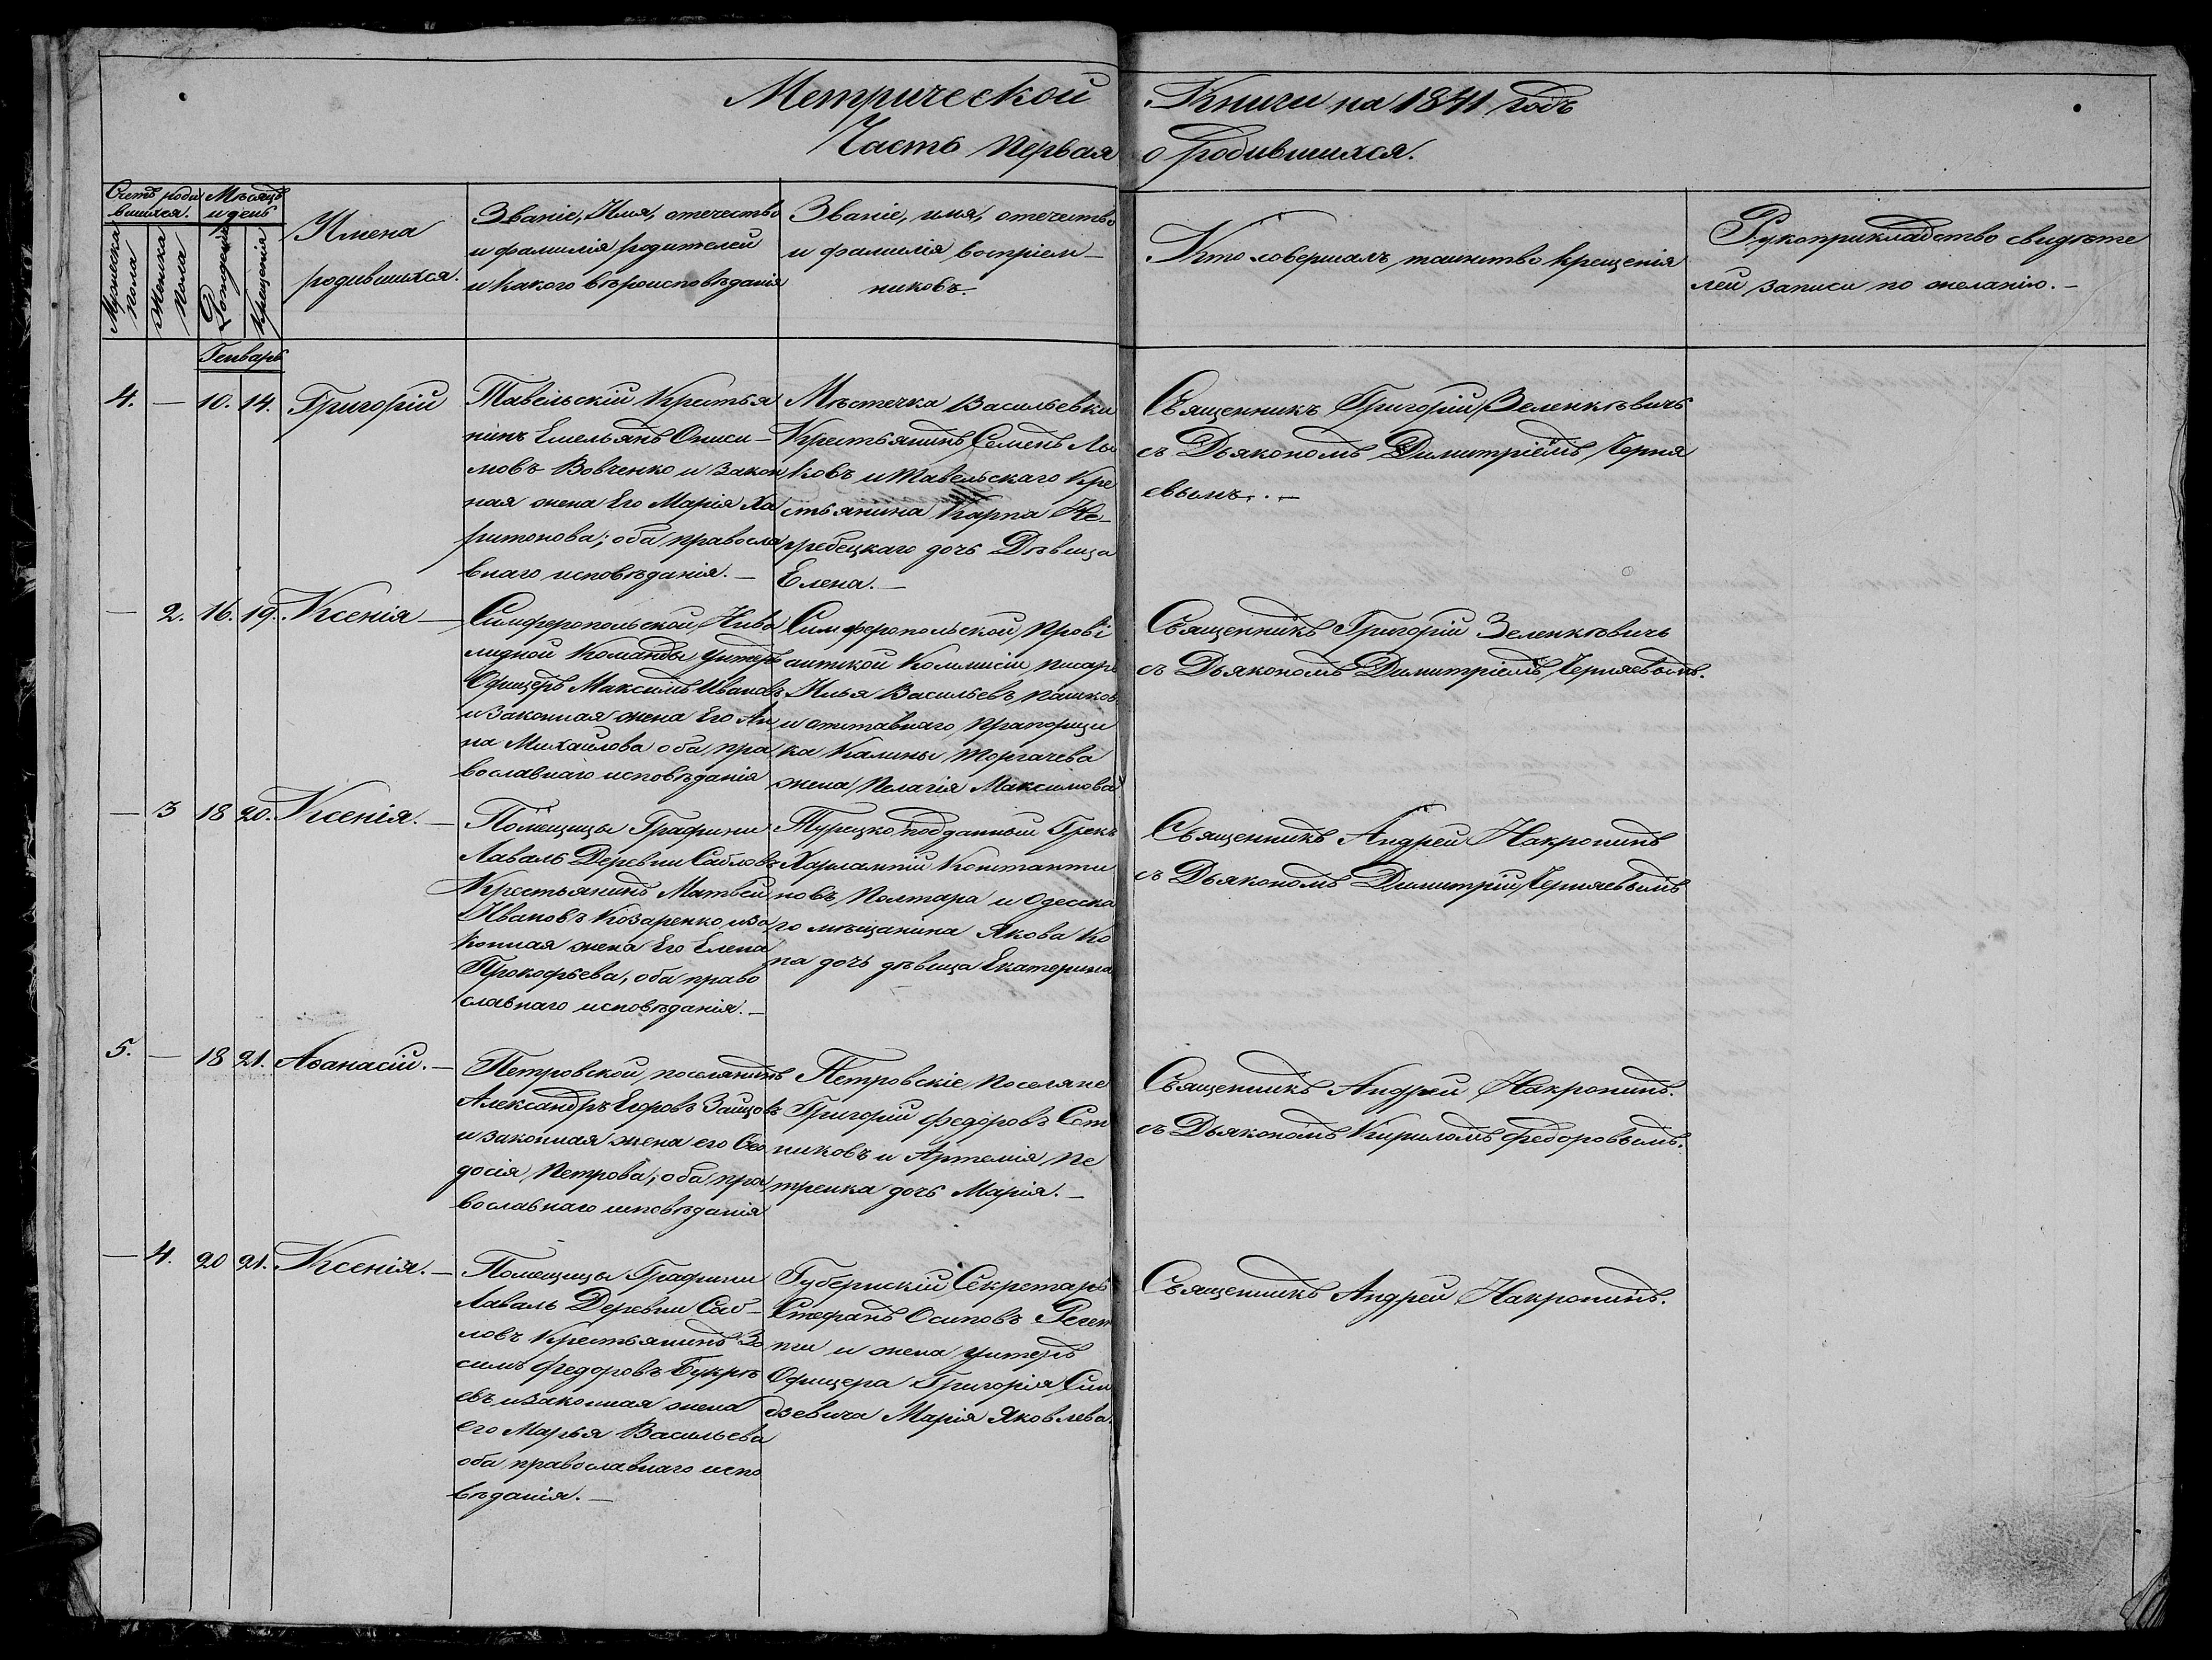 Метрической Книги на 1841 годъ
Часть Первая о родившихся.
Счетъ роди
вшихся.
Мѣсяцъ
и день
Мужеска
пола
Женска
пола
Рожденія
Крещенія
Имена
родившихся.
Званіе, Имя, отечество
и фамилія родителей
и какого вѣроисповѣданія
Званіе, имя, отечество
и фамилія воспріем-
никовъ.
Кто совершалъ таинство крещенія
Рукоприкладство свидѣте
лей записи по желанію. -
Генварь
4. — 10. 14. Григорій
Тавельскій Крестья
нинъ Емельянъ Ониси-
мовъ Вовченко и закон
ная жена Его Марія Ха
ритонова; оба правосла
внаго исповѣданія. -
Мѣстечка Васильевки
Крестьянинъ Семенъ Лы
ковъ и Тавельскаго Кре
стьянина Карпа Же-
ребецкаго дочь Дѣвица
Елена. -
Священникъ Григорій Зеленкѣвичъ
съ Дьякономъ Димитріемъ Черня
евымъ. -
— 2. 16. 19. Ксенія —
Симферопольской Инва
лидной Команды унтеръ
Офицеръ Максимъ Ивановъ
и законная жена Его Ан
на Михайлова оба пра
вославнаго исповѣданія
Симферопольской Прові
антской Коммисіи писарь
Илья Васильевъ Пашков
и отставнаго Прапорщи
ка Калины Торгачева
жена Пелагія Максимова
Священникъ Григорій Зеленкѣвичъ
съ Дьякономъ Димитріемъ Черняевымъ.
— 3 18 20. Ксенія. —
Помѣщицы Графини
Лаваль Деревни Сабловъ
Крестьянинъ Матвей
Ивановъ Козаренко и за
конная жена Его Елена
Прокофьева, оба право
славнаго исповѣданія. -
Турецко подданный Грекъ
Харлампій Константи
новъ Полтара и Одесска
го мѣщанина Якова Ко
на дочь дѣвица Екатерина
Священникъ Андрей Накропинъ
съ Дьякономъ Димитрій Черняевымъ
5. — 18 21. Аѳанасій. —
Петровской поселянинъ
Александръ Егоровъ Зайцовъ
и законная жена его Ѳео
досія Петрова; оба пра
вославнаго исповѣданія
Петровскіе Поселяне
Григорій Федоровъ Сот
никовъ и Артемія Пе
тренка дочь Марія. -
Священникъ Андрей Накропинъ.
съ Дьякономъ Кириломъ Федоровымъ.
— 4. 20 21. Ксенія. —
Помѣщицы Графини
Лаваль Деревни Саб-
ловъ Крестьянинъ Зо
симъ Федоровъ Букрѣ
евъ и законная жена
его Марья Васильева
оба православнаго испо
вѣданія. -
Губернскій Секретарь
Стефанъ Осиповъ
и жена унтеръ
Офицера Григорія Син
дзевича Марія Яковлева.
Священникъ Андрей Накропинъ.